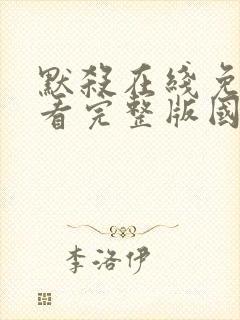 默殺在綫免
看完整版國
李洛伊